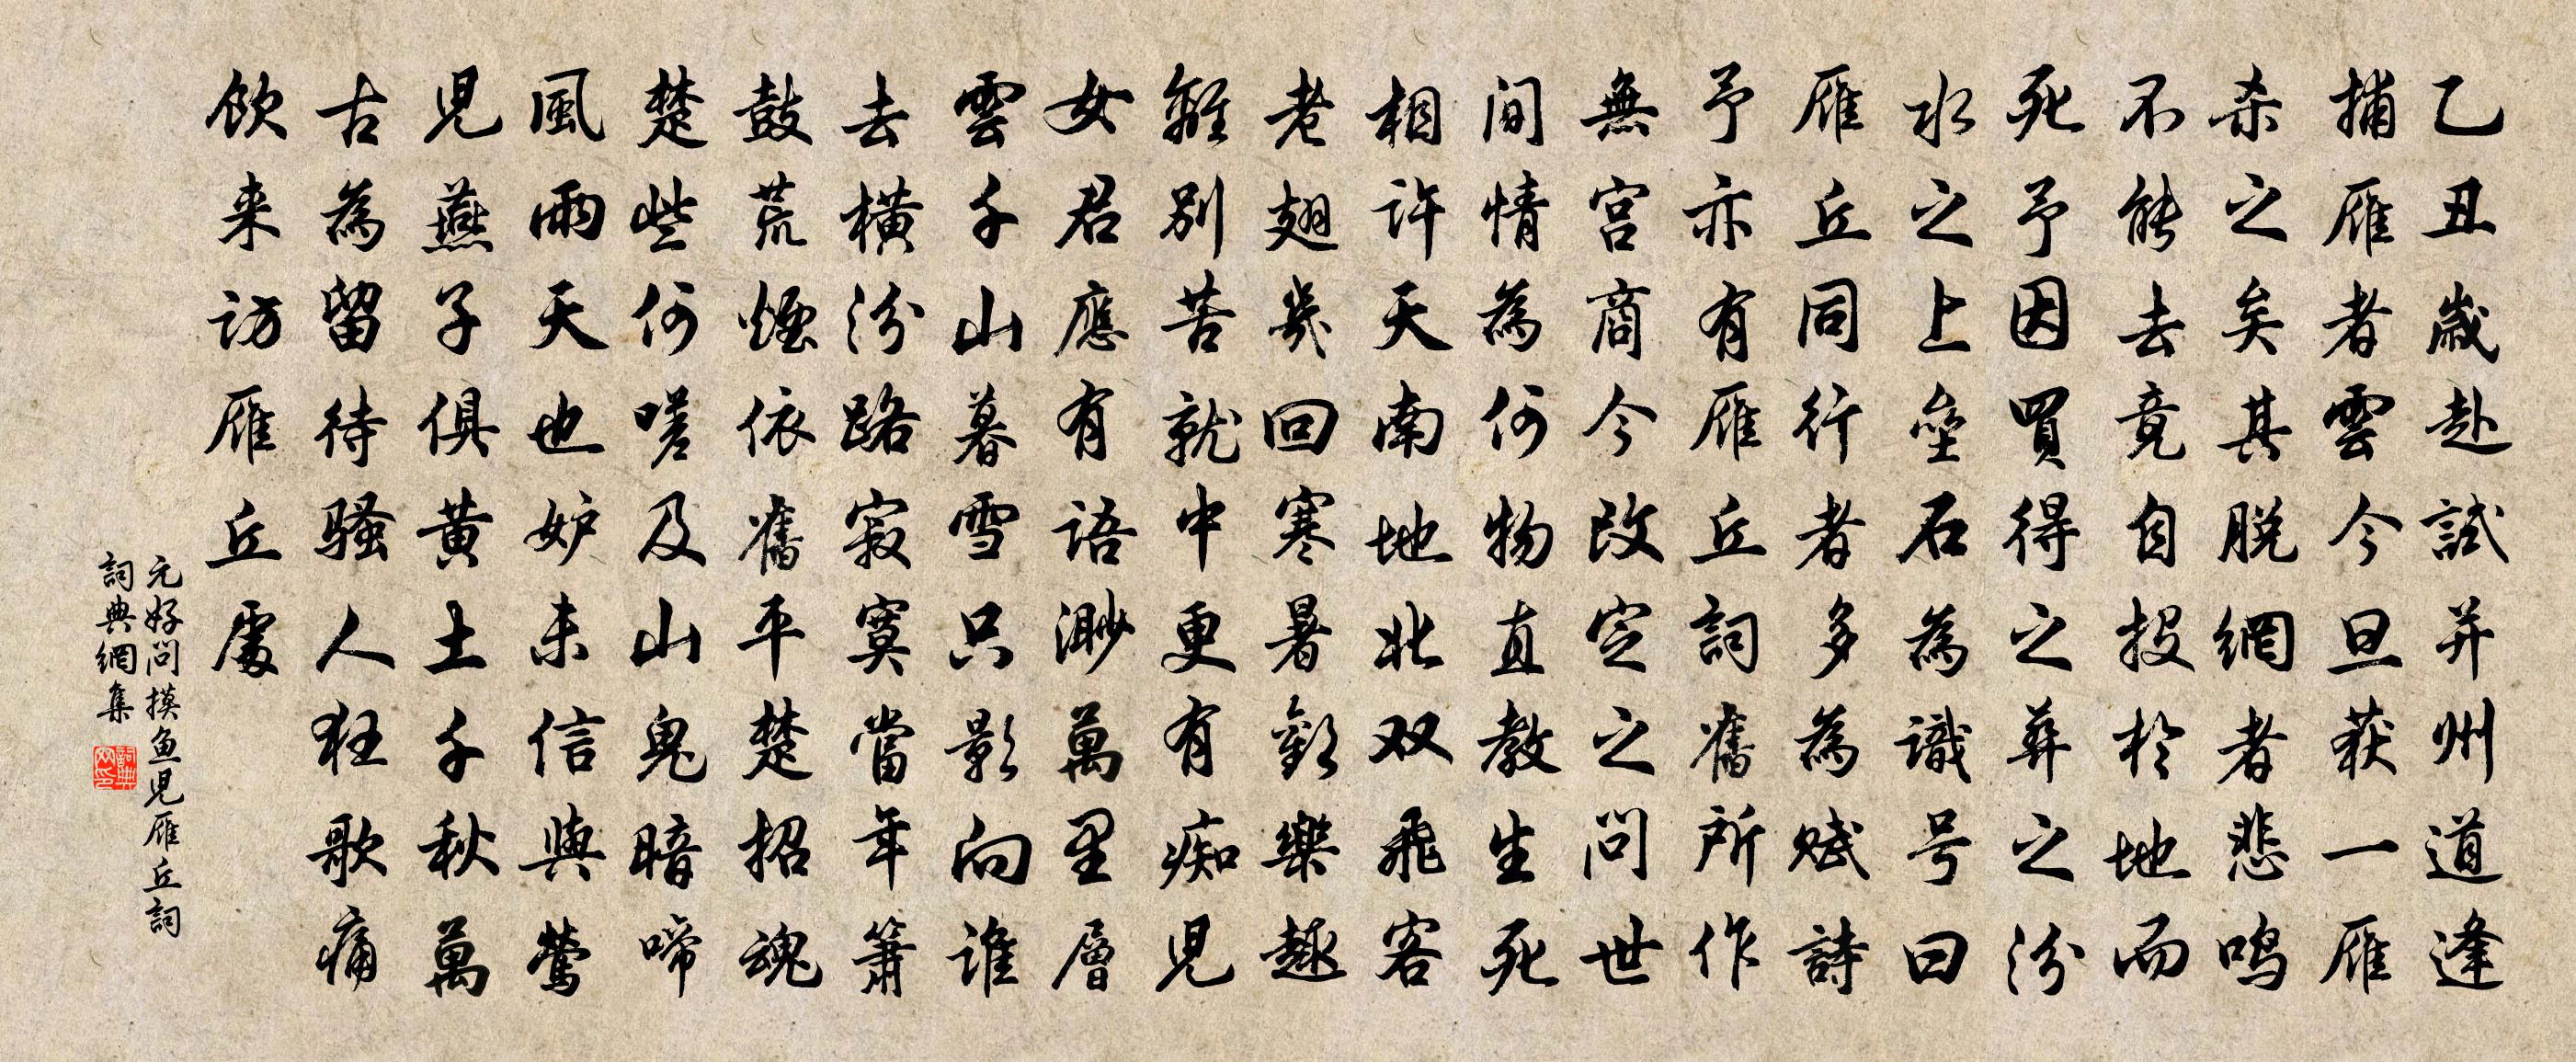 乙丑歲赴試并州道逢
捕雁者雲今旦获一雁
杀之矣其脱網者悲鸣
不能去竟自投於地而
死予因買得之葬之汾
水之上壘石為識号曰
雁丘同行者多為赋詩
予亦有雁丘詞舊所作
無宫商今改定之问世
间情為何物直教生死
相许天南地北双飛客
老翅幾回寒暑歡樂趣
離别苦就中更有痴児
女君應有语渺萬里層
雲千山暮雪只影向谁
去横汾路寂寞當年箫
鼓荒煙依舊平楚招魂
楚些何嗟及山鬼暗啼
風雨天也妒未信與莺
児燕子俱黄土千秋萬
古為留待骚人狂歌痛
饮来访雁丘處
元好问摸鱼児雁丘詞
詞典網集